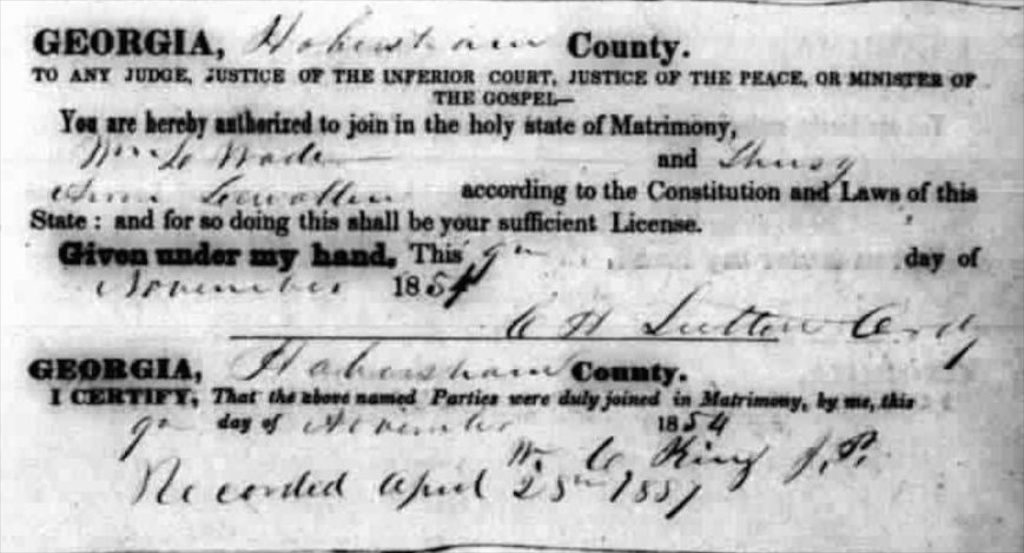 GEORGIA, Habersham County.
TO ANY JUDGE, JUSTICE OF THE INFERIOR COURT, JUSTICE OF THE PEACE, OR MINISTER OF
THE GOSPEL—
You are hereby authorized to join in the holy state of Matrimony,
Wm Wade and
Ann Lewallen according to the Constitution and Laws of this
State: and for so doing this shall be your sufficient License.
Given under my hand, This 9th day of
November 1854
C H Sutton Ordy
GEORGIA, Habersham County.
I CERTIFY, That the above named Parties were duly joined in Matrimony, by me, this
9th day of November 1854
W. C. King J.P.
Recorded April 25th